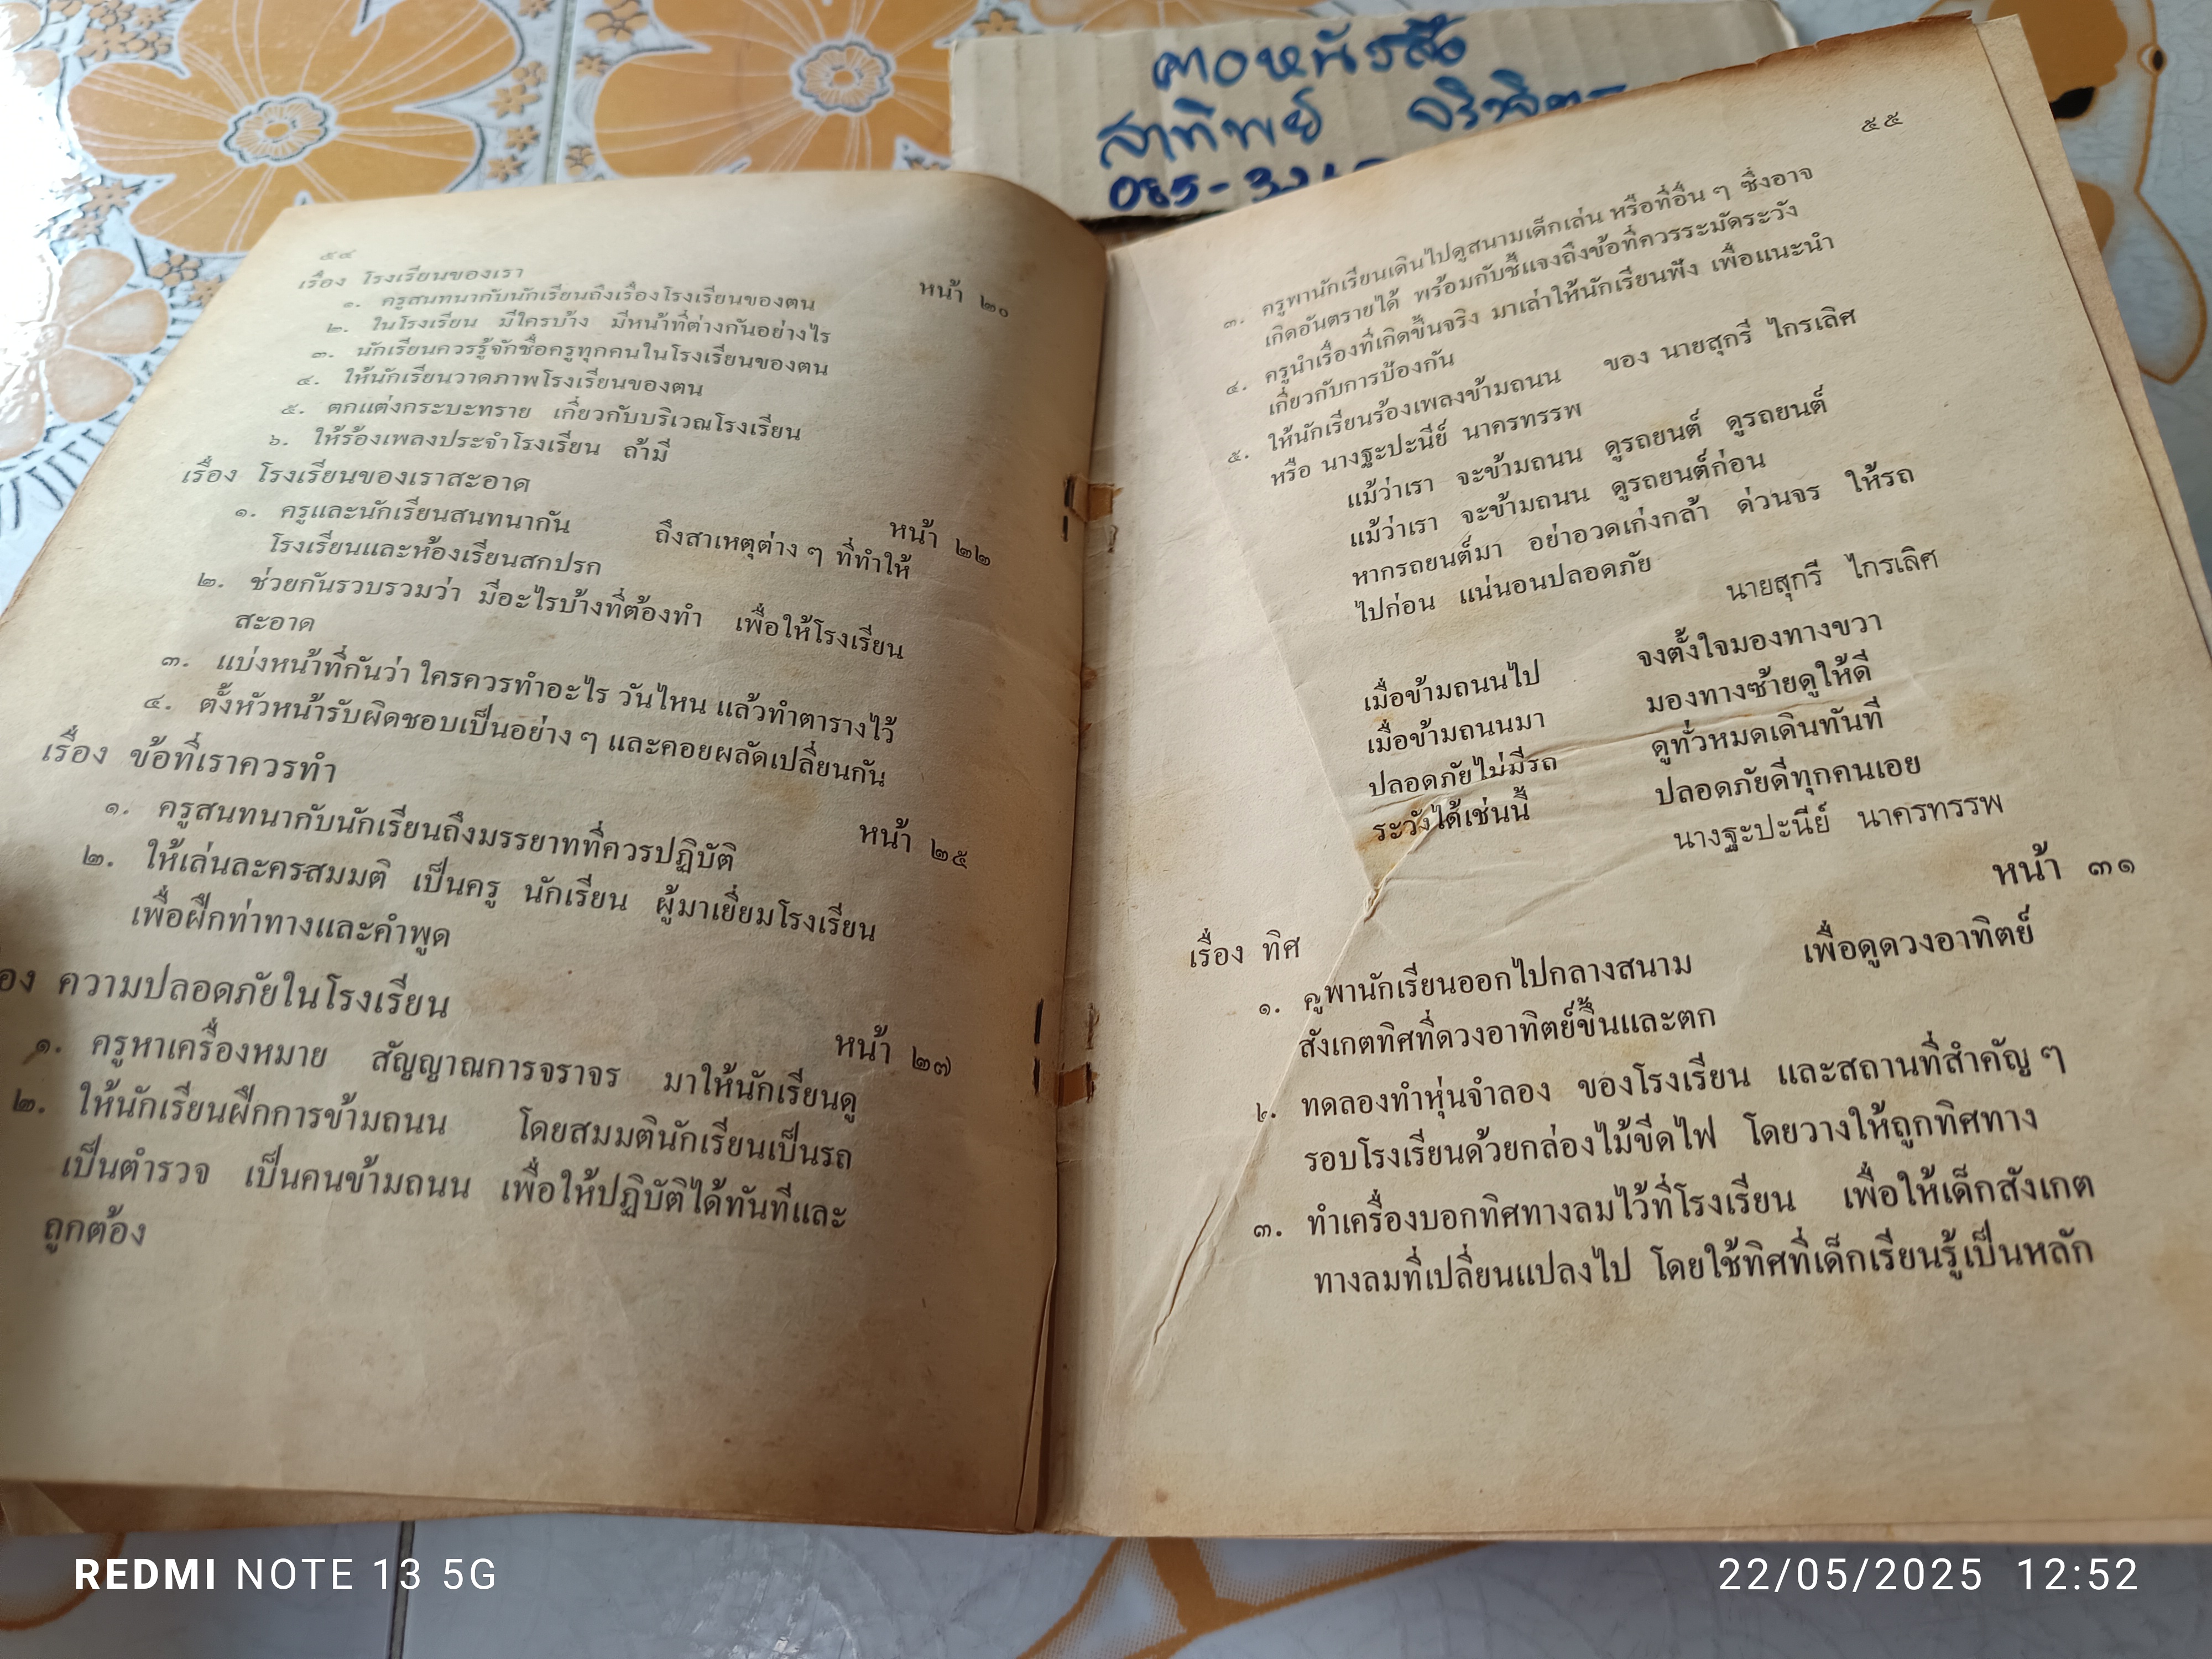 คอหนังสือ
สาทิพย์
085-3
๕๔
เรื่อง โรงเรียนของเรา
หน้า ๒๐
๑. ครูสนทนากับนักเรียนถึงเรื่องโรงเรียนของตน
๒. ในโรงเรียน มีใครบ้าง มีหน้าที่ต่างกันอย่างไร
๓. นักเรียนควรรู้จักชื่อครูทุกคนในโรงเรียนของตน
๔. ให้นักเรียนวาดภาพโรงเรียนของตน
๕. ตกแต่งกระบะทราย เกี่ยวกับบริเวณโรงเรียน
๖. ให้ร้องเพลงประจำโรงเรียน ถ้ามี
เรื่อง โรงเรียนของเราสะอาด
หน้า ๒๒
๑. ครูและนักเรียนสนทนากัน ถึงสาเหตุต่าง ๆ ที่ทำให้
โรงเรียนและห้องเรียนสกปรก
๒. ช่วยกันรวบรวมว่า มีอะไรบ้างที่ต้องทำ เพื่อให้โรงเรียน
สะอาด
๓. แบ่งหน้าที่กันว่า ใครควรทำอะไร วันไหน แล้วทำตารางไว้
๔. ตั้งหัวหน้ารับผิดชอบเป็นอย่าง ๆ และคอยผลัดเปลี่ยนกัน
เรื่อง ข้อที่เราควรทำ
หน้า ๒๕
๑. ครูสนทนากับนักเรียนถึงมรรยาทที่ควรปฏิบัติ
๒. ให้เล่นละครสมมติ เป็นครู นักเรียน ผู้มาเยี่ยมโรงเรียน
เพื่อฝึกท่าทางและคำพูด
อง ความปลอดภัยในโรงเรียน
หน้า ๒๗
๑. ครูหาเครื่องหมาย สัญญาณการจราจร มาให้นักเรียนดู
๒. ให้นักเรียนฝึกการข้ามถนน โดยสมมตินักเรียนเป็นรถ
เป็นตำรวจ เป็นคนข้ามถนน เพื่อให้ปฏิบัติได้ทันทีและ
ถูกต้อง
๕๕
๓. ครูพานักเรียนเดินไปดูสนามเด็กเล่น หรือที่อื่น ๆ ซึ่งอาจ
เกิดอันตรายได้ พร้อมกับชี้แจงถึงข้อที่ควรระมัดระวัง
๔. ครูนำเรื่องที่เกิดขึ้นจริง มาเล่าให้นักเรียนฟัง เพื่อแนะนำ
เกี่ยวกับการป้องกัน
๕. ให้นักเรียนร้องเพลงข้ามถนน ของ นายสุกรี ไกรเลิศ
หรือ นางฐะปะนีย์ นาครทรรพ
แม้ว่าเรา จะข้ามถนน ดูรถยนต์ ดูรถยนต์
แม้ว่าเรา จะข้ามถนน ดูรถยนต์ก่อน
หากรถยนต์มา อย่าอวดเก่งกล้า ด่วนจร ให้รถ
ไปก่อน แน่นอนปลอดภัย
นายสุกรี ไกรเลิศ
เมื่อข้ามถนนไป จงตั้งใจมองทางขวา
เมื่อข้ามถนนมา มองทางซ้ายดูให้ดี
ปลอดภัยไม่มีรถ ดูทั่วหมดเดินทันที
ระวังได้เช่นนี้ ปลอดภัยดีทุกคนเอย
นางฐะปะนีย์ นาครทรรพ
เรื่อง ทิศ
หน้า ๓๑
๑. ครูพานักเรียนออกไปกลางสนาม เพื่อดูดวงอาทิตย์
สังเกตทิศที่ดวงอาทิตย์ขึ้นและตก
๒. ทดลองทำหุ่นจำลอง ของโรงเรียน และสถานที่สำคัญ ๆ
รอบโรงเรียนด้วยกล่องไม้ขีดไฟ โดยวางให้ถูกทิศทาง
๓. ทำเครื่องบอกทิศทางลมไว้ที่โรงเรียน เพื่อให้เด็กสังเกต
ทางลมที่เปลี่ยนแปลงไป โดยใช้ทิศที่เด็กเรียนรู้เป็นหลัก
REDMI NOTE 13 5G
22/05/2025 12:52